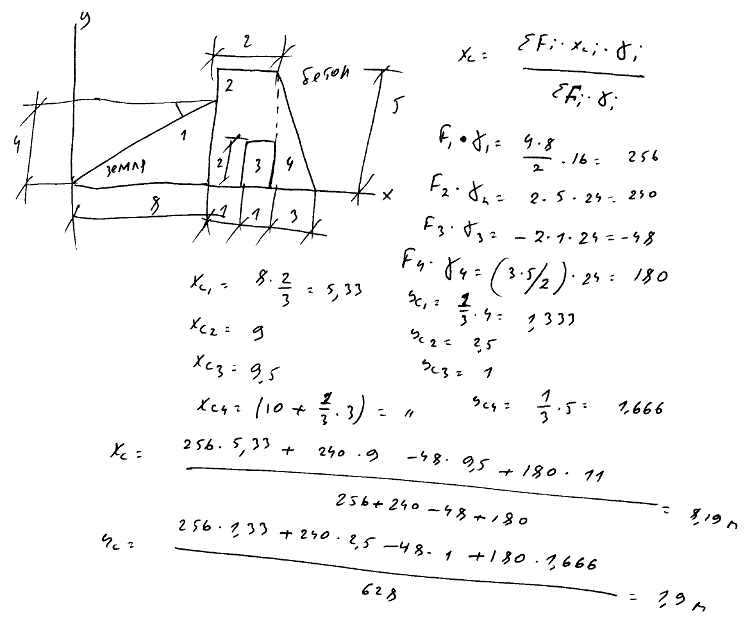 y
2
2
бетон
x_c = ΣF_i · x_ci · γ_i / ΣF_i · γ_i
4
1
5
земля
2
3
4
x
8
1
1
3
F_1 · γ_1 = 4·8/2 · 16 = 256
F_2 · γ_2 = 2 · 5 · 24 = 240
F_3 · γ_3 = - 2 · 1 · 24 = -48
F_4 · γ_4 = (3·5/2) · 24 = 180
x_c1 = 8 · 2/3 = 5,33
y_c1 = 1/3 · 4 = 1,333
x_c2 = 9
y_c2 = 2,5
x_c3 = 9,5
y_c3 = 1
x_c4 = (10 + 1/3 · 3) = 11
y_c4 = 1/3 · 5 = 1,666
x_c = 256 · 5,33 + 240 · 9 - 48 · 9,5 + 180 · 11 / 256 + 240 - 48 + 180 = 8,19 м
y_c = 256 · 1,33 + 240 · 2,5 - 48 · 1 + 180 · 1,666 / 628 = 1,9 м